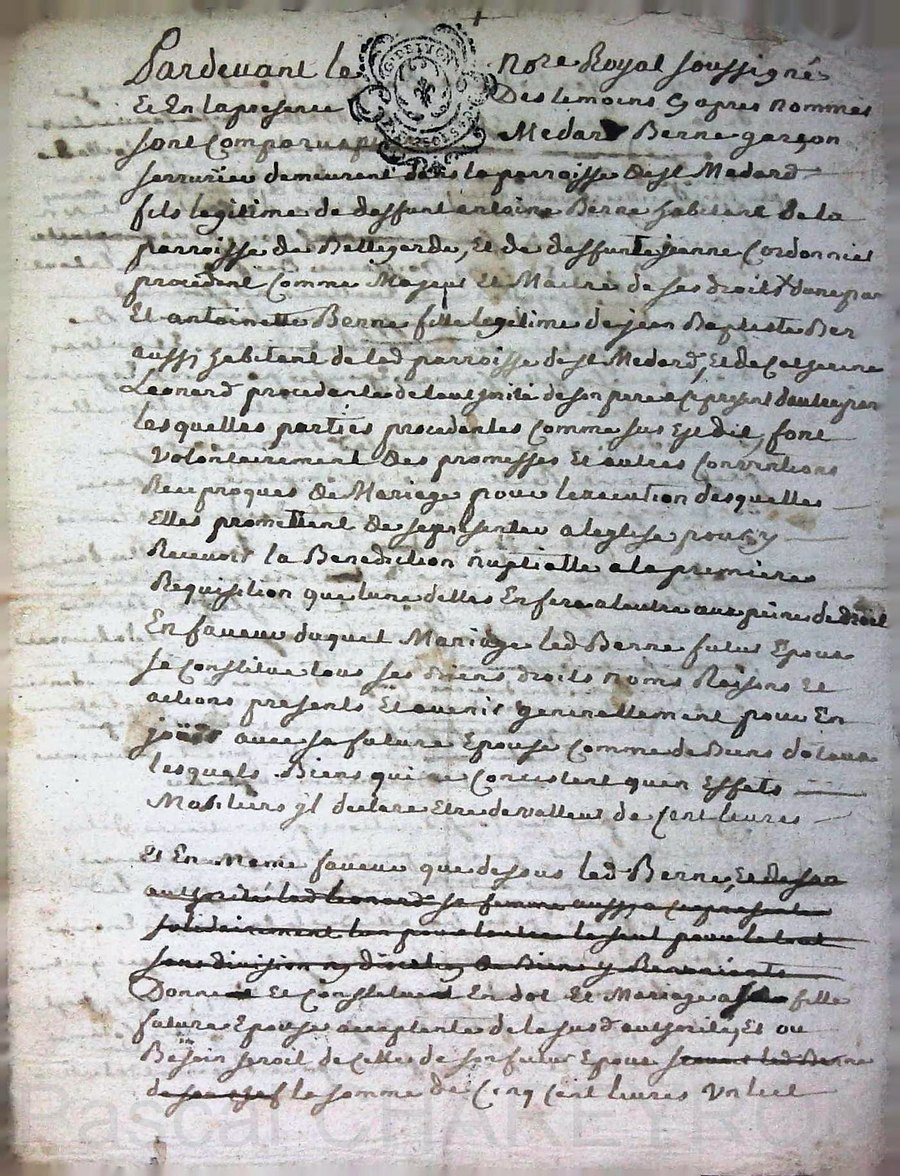 Pardevant le nore Royal soussigné
Et En la presence Des temoins Cy apres nommes
sont Comparus Medard Berne garçon
serrurier demeurent dans la parroisse de st Medard
fils legitime de deffunt antoine Berne habitent de la
parroisse de Bellegarde, Et de deffunte jeanne Cordonnier
procedent Comme Majeur Et Maitre de ses droits dune par
Et antoinette Berne fille legitime de jean Baptiste Ber
aussi habitent de lad parroisse de st Medard, Et de Catherine
Leonard procedente de lauthorité de son pere Cy present dautre part
lesquelles parties procedentes Comme sus Est dit, font
volontairement des promesses Et autres Conventions
Reciproques de Mariage pour lexecution desquelles
Elles promettent de se presenter a leglise pour y
Recevoir la Benediction nuptialle a la premiere
Requisition que lune delles En fera a lautre aux peines de droit
En faveur duquel Mariage led Berne futur Epoux
se Constitue tous ses Biens droits noms Raisons Et
actions presents Et avenir generallement pour En
joüir avec sa future Epouse Comme de Biens dotaux
lesquels Biens qui ne Concistent quen Effets
Mobiliers jl declare Etre de valleur de Cent livres
Et En Meme faveur que dessus led Berne, Et de son
authorité lad Leonard sa femme aussy Cy presente
solidairement lun pour lautre le seul pour le tout
sans division ny discution de Biens y Renonciants
Donnent Et Constituent En dot Et Mariage a fille
future Epouse acceptante de la susd authorité, Et ou
Besoin seroit de Celles de son futur Epoux scavoir led Berne
de son chef la somme de Cinq Cent livres Un lict
Pascal CHAREYRON